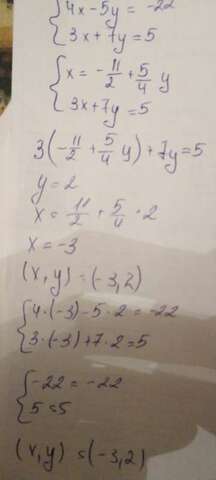 4x-5y=-22
3x+7y=5
x=-11/2+5/4 y
3x+7y=5
3(-11/2+5/4 y)+7y=5
y=2
x=-11/2+5/4·2
x=-3
(x,y)=(-3,2)
4·(-3)-5·2=-22
3·(-3)+7·2=5
-22=-22
5=5
(x,y)=(-3,2)